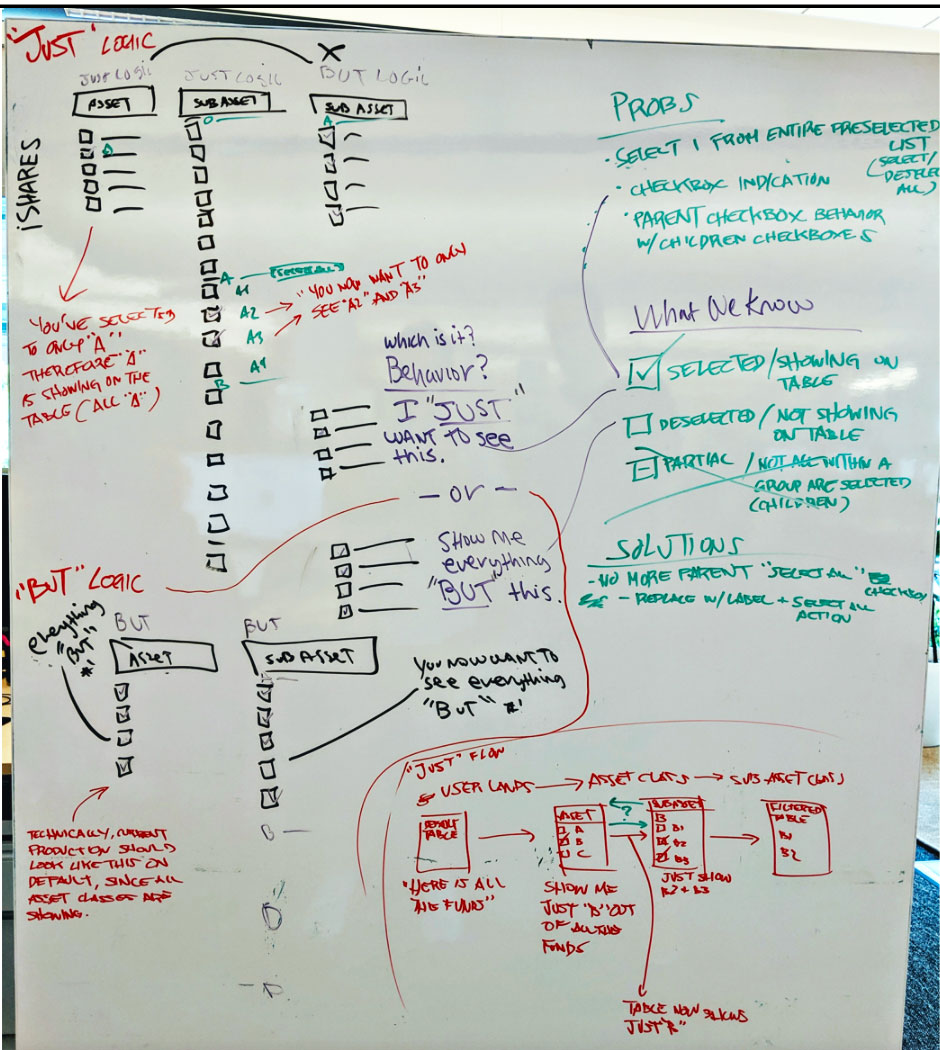 "JUST" LOGIC
X
JUST LOGIC
JUST LOGIC
BUT LOGIC
ASSET
SUB ASSET
SUB ASSET
iSHARES
A
A
A
(SELECT ALL)
A1
A2
A3
A4
B
"YOU NOW WANT TO ONLY
SEE "A2" AND "A3"
YOU'VE SELECTED
TO ONLY "A",
THEREFORE "A"
IS SHOWING ON THE
TABLE (ALL "A")
which is it?
Behavior?
I "JUST"
WANT TO see
this.
- or -
SHOW ME
everything
"BUT" this.
PROBS
• SELECT 1 FROM ENTIRE PRESELECTED
LIST
(SELECT/
DESELECT
ALL)
• CHECKBOX INDICATION
• PARENT CHECKBOX BEHAVIOR
W/CHILDREN CHECKBOXES
What We Know
SELECTED/SHOWING ON
TABLE
DESELECTED/NOT SHOWING
ON TABLE
PARTIAL / NOT ALL WITHIN A
GROUP ARE SELECTED
(CHILDREN)
SOLUTIONS
- NO MORE PARENT "SELECT ALL"
CHECKBOX
- REPLACE W/LABEL + SELECT ALL
ACTION
"BUT" LOGIC
everything
"BUT"
BUT
BUT
ASSET
SUB ASSET
YOU NOW WANT TO
see everything
"BUT"
B -
TECHNICALLY, CURRENT
PRODUCTION SHOULD
LOOK LIKE THIS ON
DEFAULT, SINCE ALL
ASSET CLASSES ARE
SHOWING.
"JUST" FLOW
USER LANDS → ASSET CLASS → SUB ASSET CLASS
DEFAULT
TABLE
ASSET
A
B
C
?
SUBASSET
B
B1
B2
B3
FILTERED
TABLE
B1
B2
"HERE IS ALL
THE FUNDS"
SHOW ME
JUST "B" OUT
OF ALL THE
FUNDS
JUST SHOW
B2 + B3
TABLE NOW SHOWS
JUST "B"